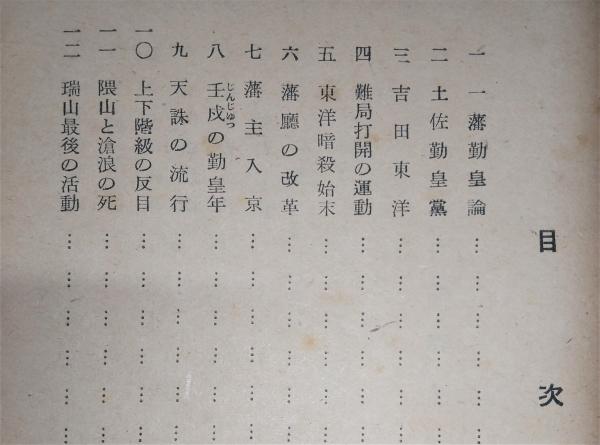 目次
一 一藩勤皇論………………
二 土佐勤皇黨………………
三 吉田東洋………………
四 難局打開の運動………………
五 東洋暗殺始末………………
六 藩廳の改革………………
七 藩主入京………………
八 壬戍の勤皇年………………
じんじゆつ
九 天誅の流行………………
一〇 上下階級の反目………………
一一 隈山と滄浪の死………………
一二 瑞山最後の活動………………